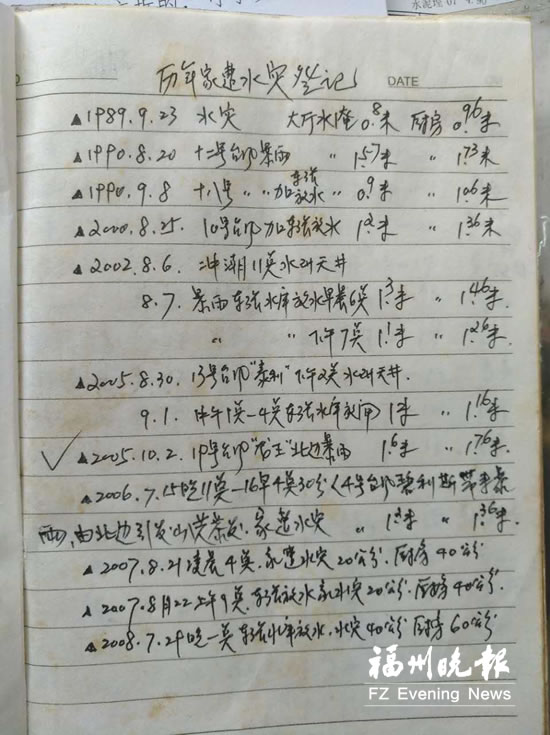 水泥栓
历年家遭水灾登记
DATE
▲1989.9.23 水灾 大厅水淹0.8米 厨房0.96米
▲1990.8.20 十二号台风暴雨 1.57米 〃 1.73米
▲1990.9.8 十八号〃〃加东张放水〃0.9米 〃 1.06米
▲2000.8.25. 10号台风加东张放水 1.2米 〃 1.36米
▲2002.8.6. 冲潮11点水叫天井
8.7. 暴雨东张水库放水早晨6点 1.3米 〃 1.46米.
〃 〃 下午7点 1.1米 〃 1.26米.
▲2005.8.30. 13号台风"泰利"下午2点水叫天井.
9.1. 中午1点-4点东张水库放闸 1米 〃 1.16米.
▲2005.10.2. 19号台风"龙王"北边暴雨 1.6米 〃 1.76米.
▲2006.7.15晚11点-16早4点30分〈4号台风碧利斯带来暴
雨,由北边引发山洪暴发.家遭水灾 〃 1.2米 〃 1.36米.
▲2007.8.21凌晨4点.家遭水灾20公分.厨房40公分
▲2007.8月22上午9点.东张放水家水灾20公分.厨房40公分.
▲2008.7.29晚一点东张水库放水.水灾40公分厨房60公分
福州晚报
FZ Evening News